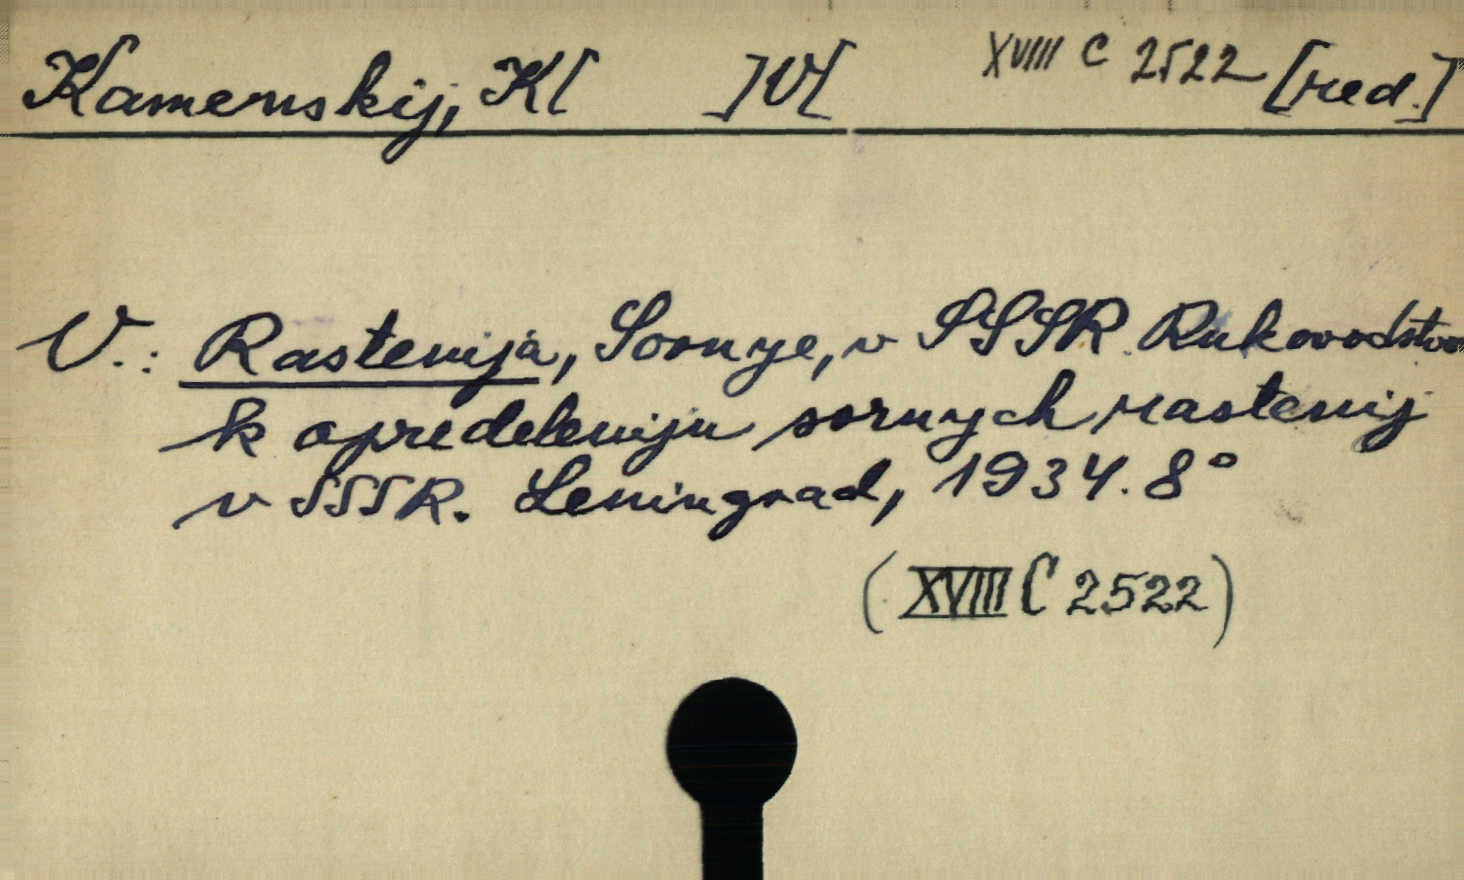 Kamenskij, K[ ]V[ XVIII C 2522 [red.]
V.: Rastenija, Sornye, v SSSR. Rukovodstvo
k opredeleniju sornych rastenij
v SSSR. Leningrad, 1934. 8°
(XVIII C 2522)